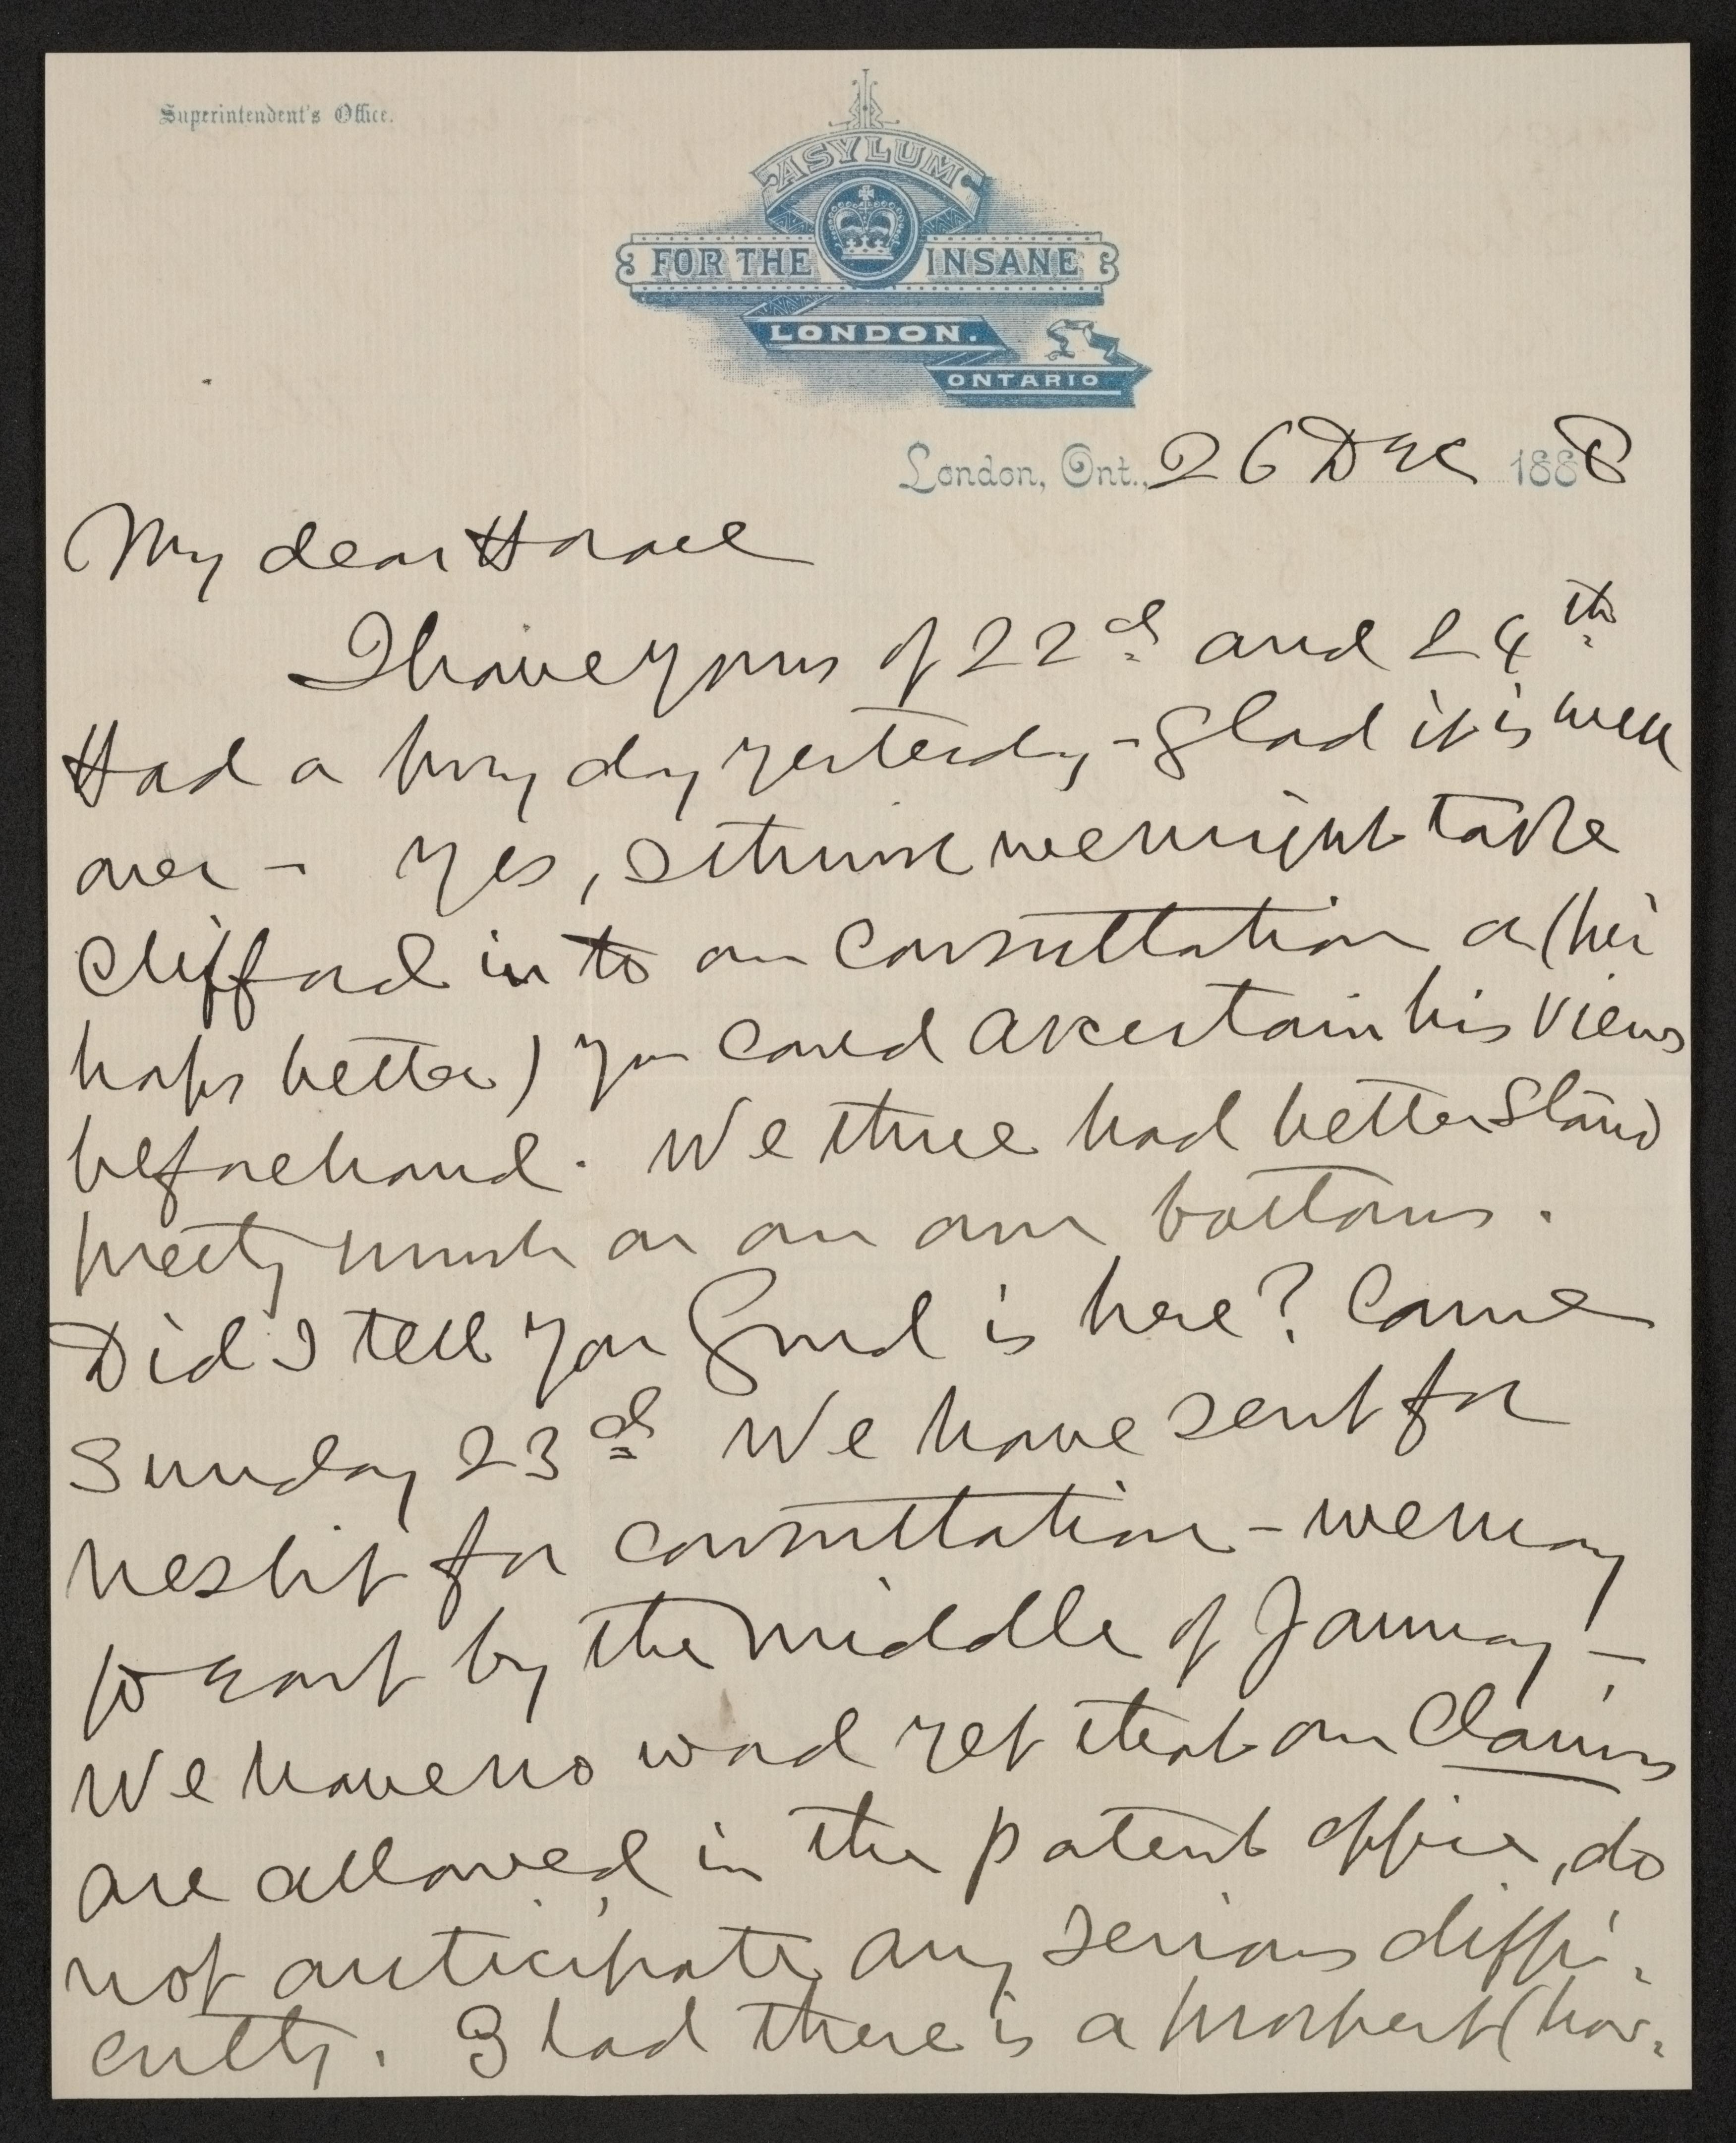 Superintendent's Office.
ASYLUM
FOR THE INSANE
LONDON.
ONTARIO
London, Ont., 26 Dec 1888
My dear Horace
I have yours of 22d and 24th
Had a busy day yesterday - glad it is well
over - Yes, I think we might take
Clifford in to our consultation or (per
haps better) you could ascertain his views
beforehand. We three had better stand
pretty much on our own bottoms.
Did I tell you Gurd is here? Came
Sunday 23d We have sent for
Nesbit for consultation - we may
go east by the middle of January -
We have no word yet that our Claims
are allowed in the patent office, do
not anticipate any serious diffi-
culty. Glad there is a prospect (how-